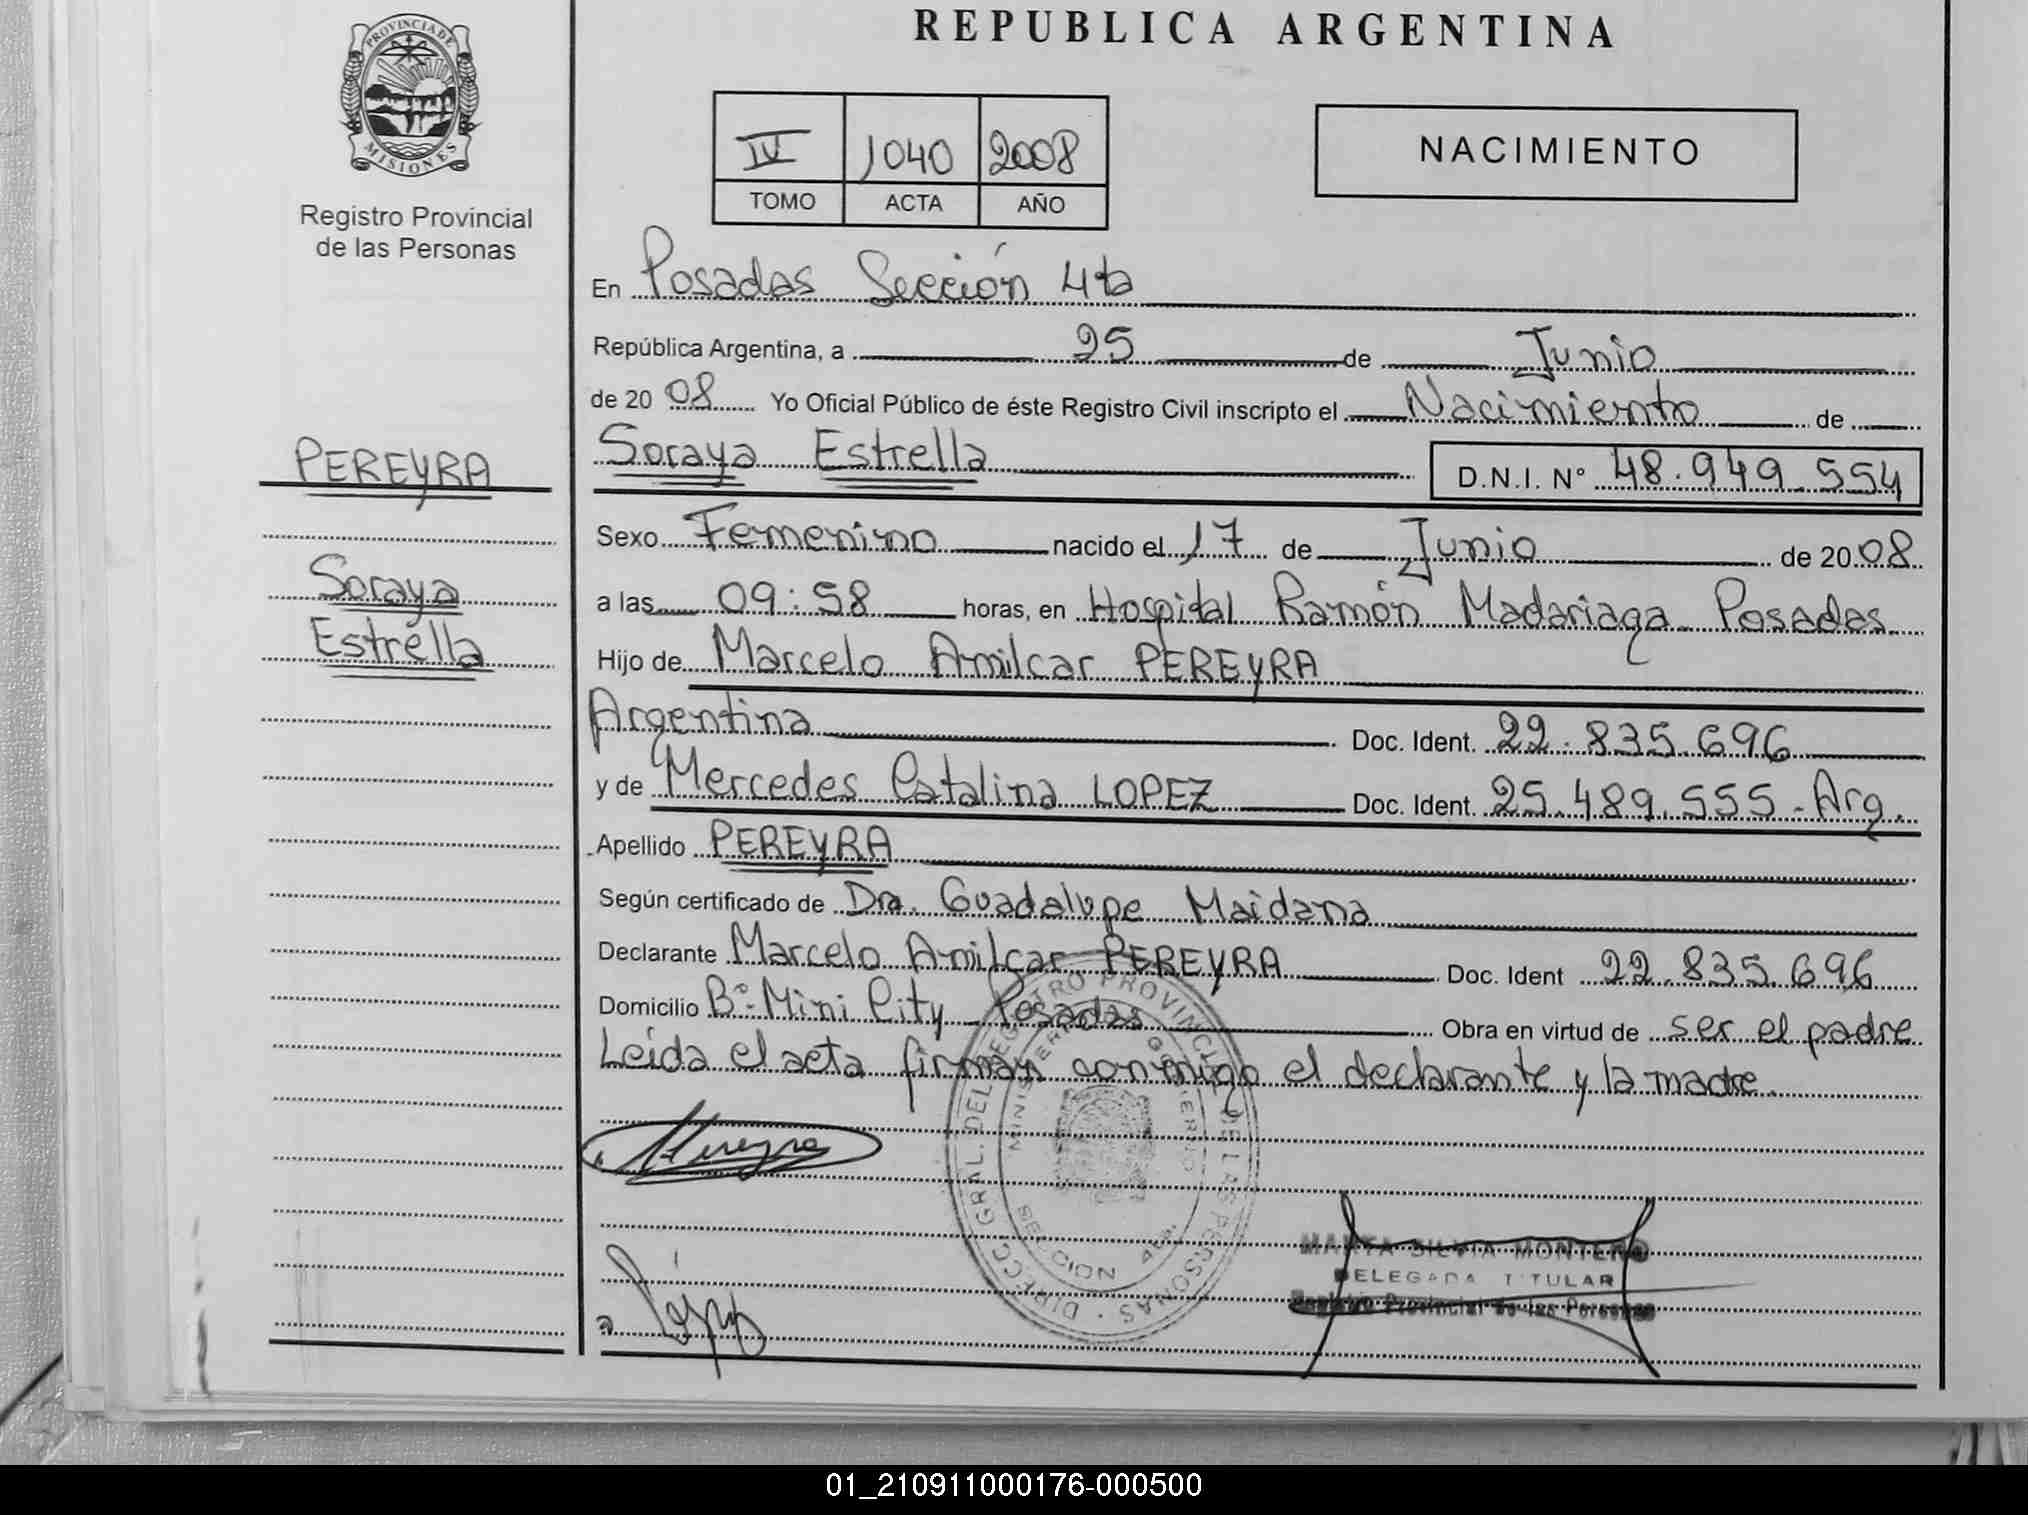 PROVINCIA DE
MISIONES
Registro Provincial
de las Personas
PEREYRA
Soraya
Estrella
REPUBLICA ARGENTINA
IV 1040 2008
TOMO ACTA AÑO
NACIMIENTO
En Posadas Sección 4ta
República Argentina, a 25 de Junio
de 20 08 Yo Oficial Público de éste Registro Civil inscripto el Nacimiento de
Soraya Estrella D.N.I. Nº 48.949.554
Sexo Femenino nacido el 17 de Junio de 20 08
a las 09:58 horas, en Hospital Ramón Madariaga Posadas
Hijo de Marcelo Amilcar PEREYRA
Argentina Doc. Ident. 22.835.696
y de Mercedes Catalina LOPEZ Doc. Ident. 25.489.555-Arg.
Apellido PEREYRA
Según certificado de Dra. Guadalupe Maidana
Declarante Marcelo Amilcar PEREYRA Doc. Ident 22.835.696
Domicilio Bº Mini City Posadas Obra en virtud de ser el padre
Leída el acta firman conmigo el declarante y la madre
DIRECC. GRAL. DEL REGISTRO PROVINCIAL DE LAS PERSONAS
MINISTERIO GOBIERNO
SECCION 4ta.
MARTA SILVIA MONTERO
DELEGADA TITULAR
Registro Provincial de las Personas
01_210911000176-000500